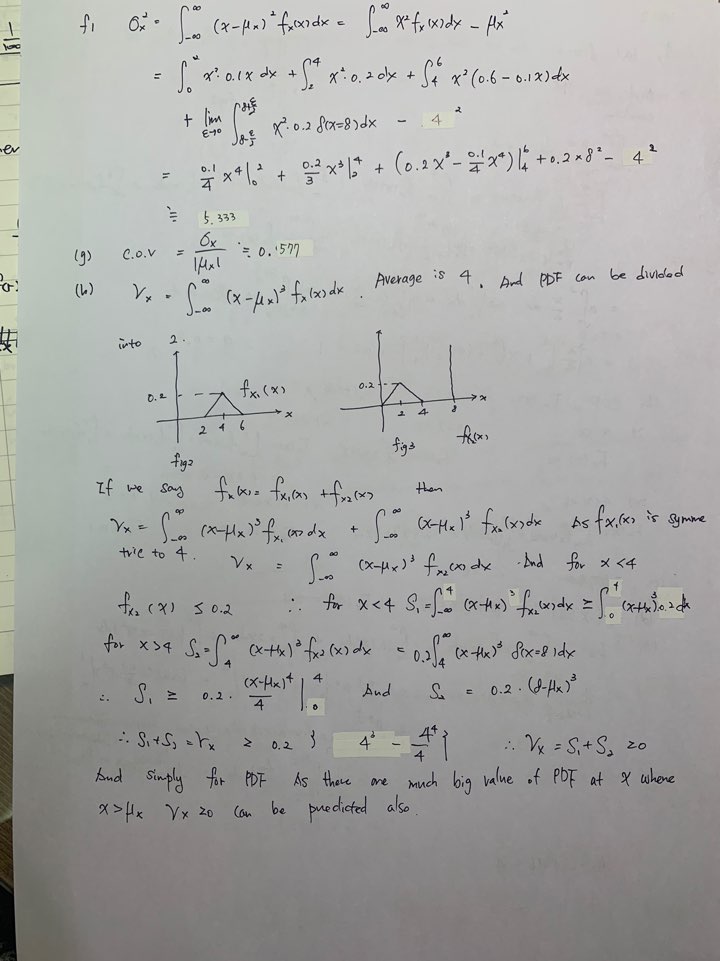 f) σx² = ∫_{-∞}^{∞} (x-μx)² fx(x)dx = ∫_{-∞}^{∞} x² fx(x)dx - μx²
= ∫_0^2 x²·0.1x dx + ∫_2^4 x²·0.2dx + ∫_4^6 x²(0.6-0.1x)dx
+ lim_{ε→0} ∫_{8-ε/2}^{8+ε/2} x²·0.2 δ(x=8)dx - 4²
= 0.1/4 x⁴|_0^2 + 0.2/3 x³|_2^4 + (0.2x³ - 0.1/4 x⁴)|_4^6 + 0.2×8² - 4²
≒ 5.333
(g) C.O.V = σx/|μx| ≒ 0.577
(h) γx = ∫_{-∞}^{∞} (x-μx)³ fx(x)dx. Average is 4. And PDF can be divided
into 2.
0.2 fx₁(x) x 2 4 6
fig2
0.2 x 2 4 8
fig3 fx₂(x)
If we say fx(x) = fx₁(x) + fx₂(x) then
γx = ∫_{-∞}^{∞} (x-μx)³ fx₁(x)dx + ∫_{-∞}^{∞} (x-μx)³ fx₂(x)dx As fx₁(x) is symme
tric to 4. γx = ∫_{-∞}^{∞} (x-μx)³ fx₂(x)dx. And for x<4
fx₂(x) ≤ 0.2 ∴ for x<4 S₁ = ∫_{-∞}^4 (x-μx)³ fx₂(x)dx ≥ ∫_0^4 (x-μx)³ 0.2dx
for x>4 S₂ = ∫_4^∞ (x-μx)³ fx₂(x)dx = 0.2∫_4^∞ (x-μx)³ δ(x=8)dx
∴ S₁ ≥ 0.2·(x-μx)⁴/4 |_0^4 And S₂ = 0.2·(8-μx)³
∴ S₁+S₂ = γx ≥ 0.2 { 4³ - 4⁴/4 } ∴ γx = S₁+S₂ ≥0
And simply for PDF As there are much big value of PDF at x where
x>μx γx ≥0 can be predicted also.